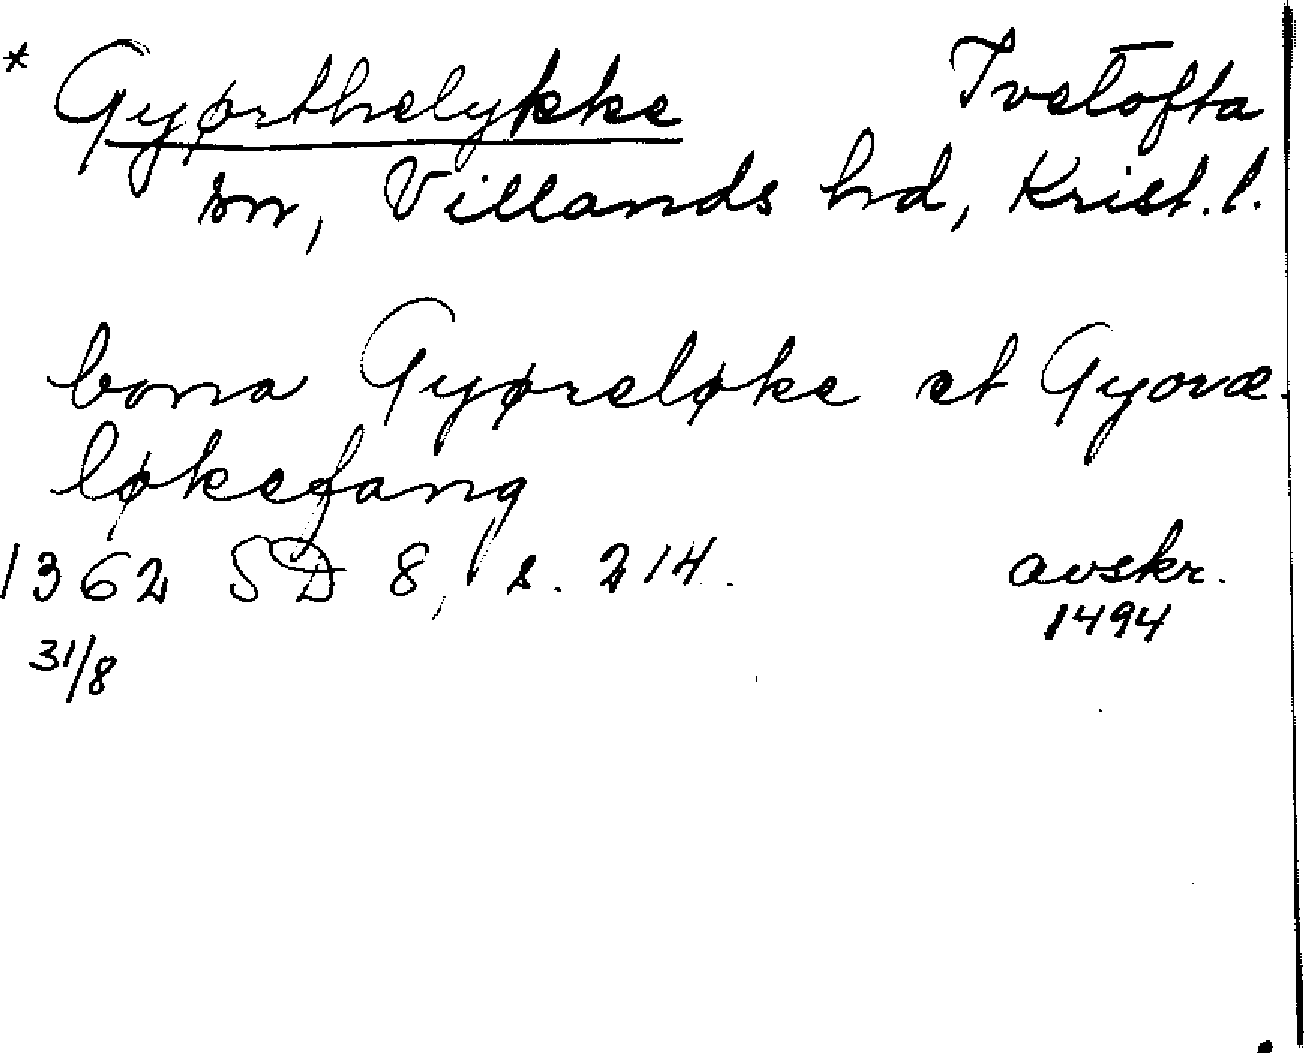 * Gyørthelykke Ivetofta
sn, Villands hd, Krist. l.
bona Gyøreløke et Gyoræ-
løkefang
1362 SD 8, s. 214. avskr.
31/8 1494